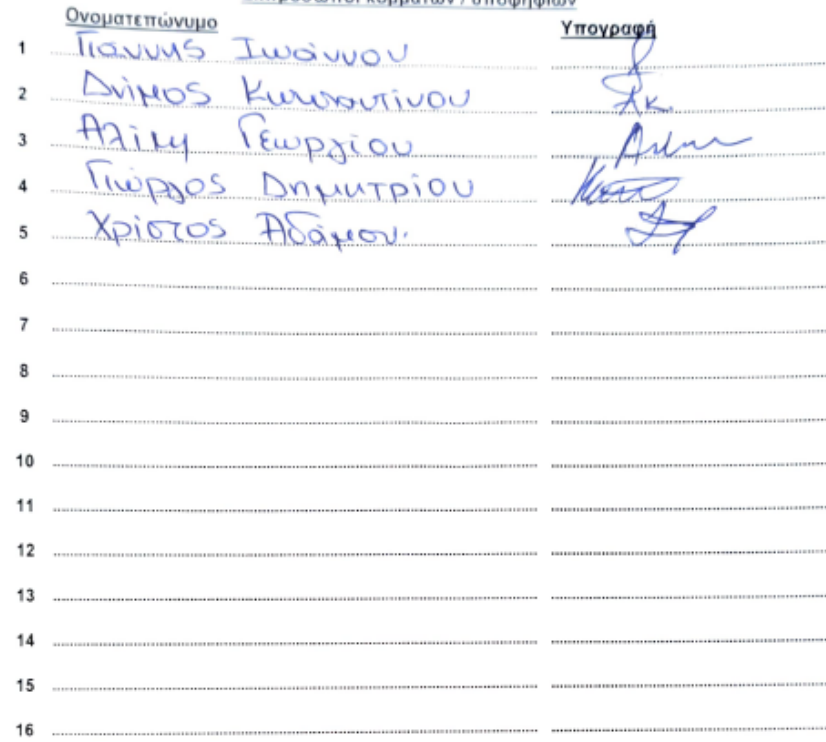 κομμάτων / υποψηφίων
Ονοματεπώνυμο Υπογραφή
1 Γιαννης Ιωάννου
2 Δνίμος
3 Αλίκη Γεωργίου
4 Γιώργος Δημητρίου
5 Χρίστος Αδάμου.
6
7
8
9
10
11
12
13
14
15
16